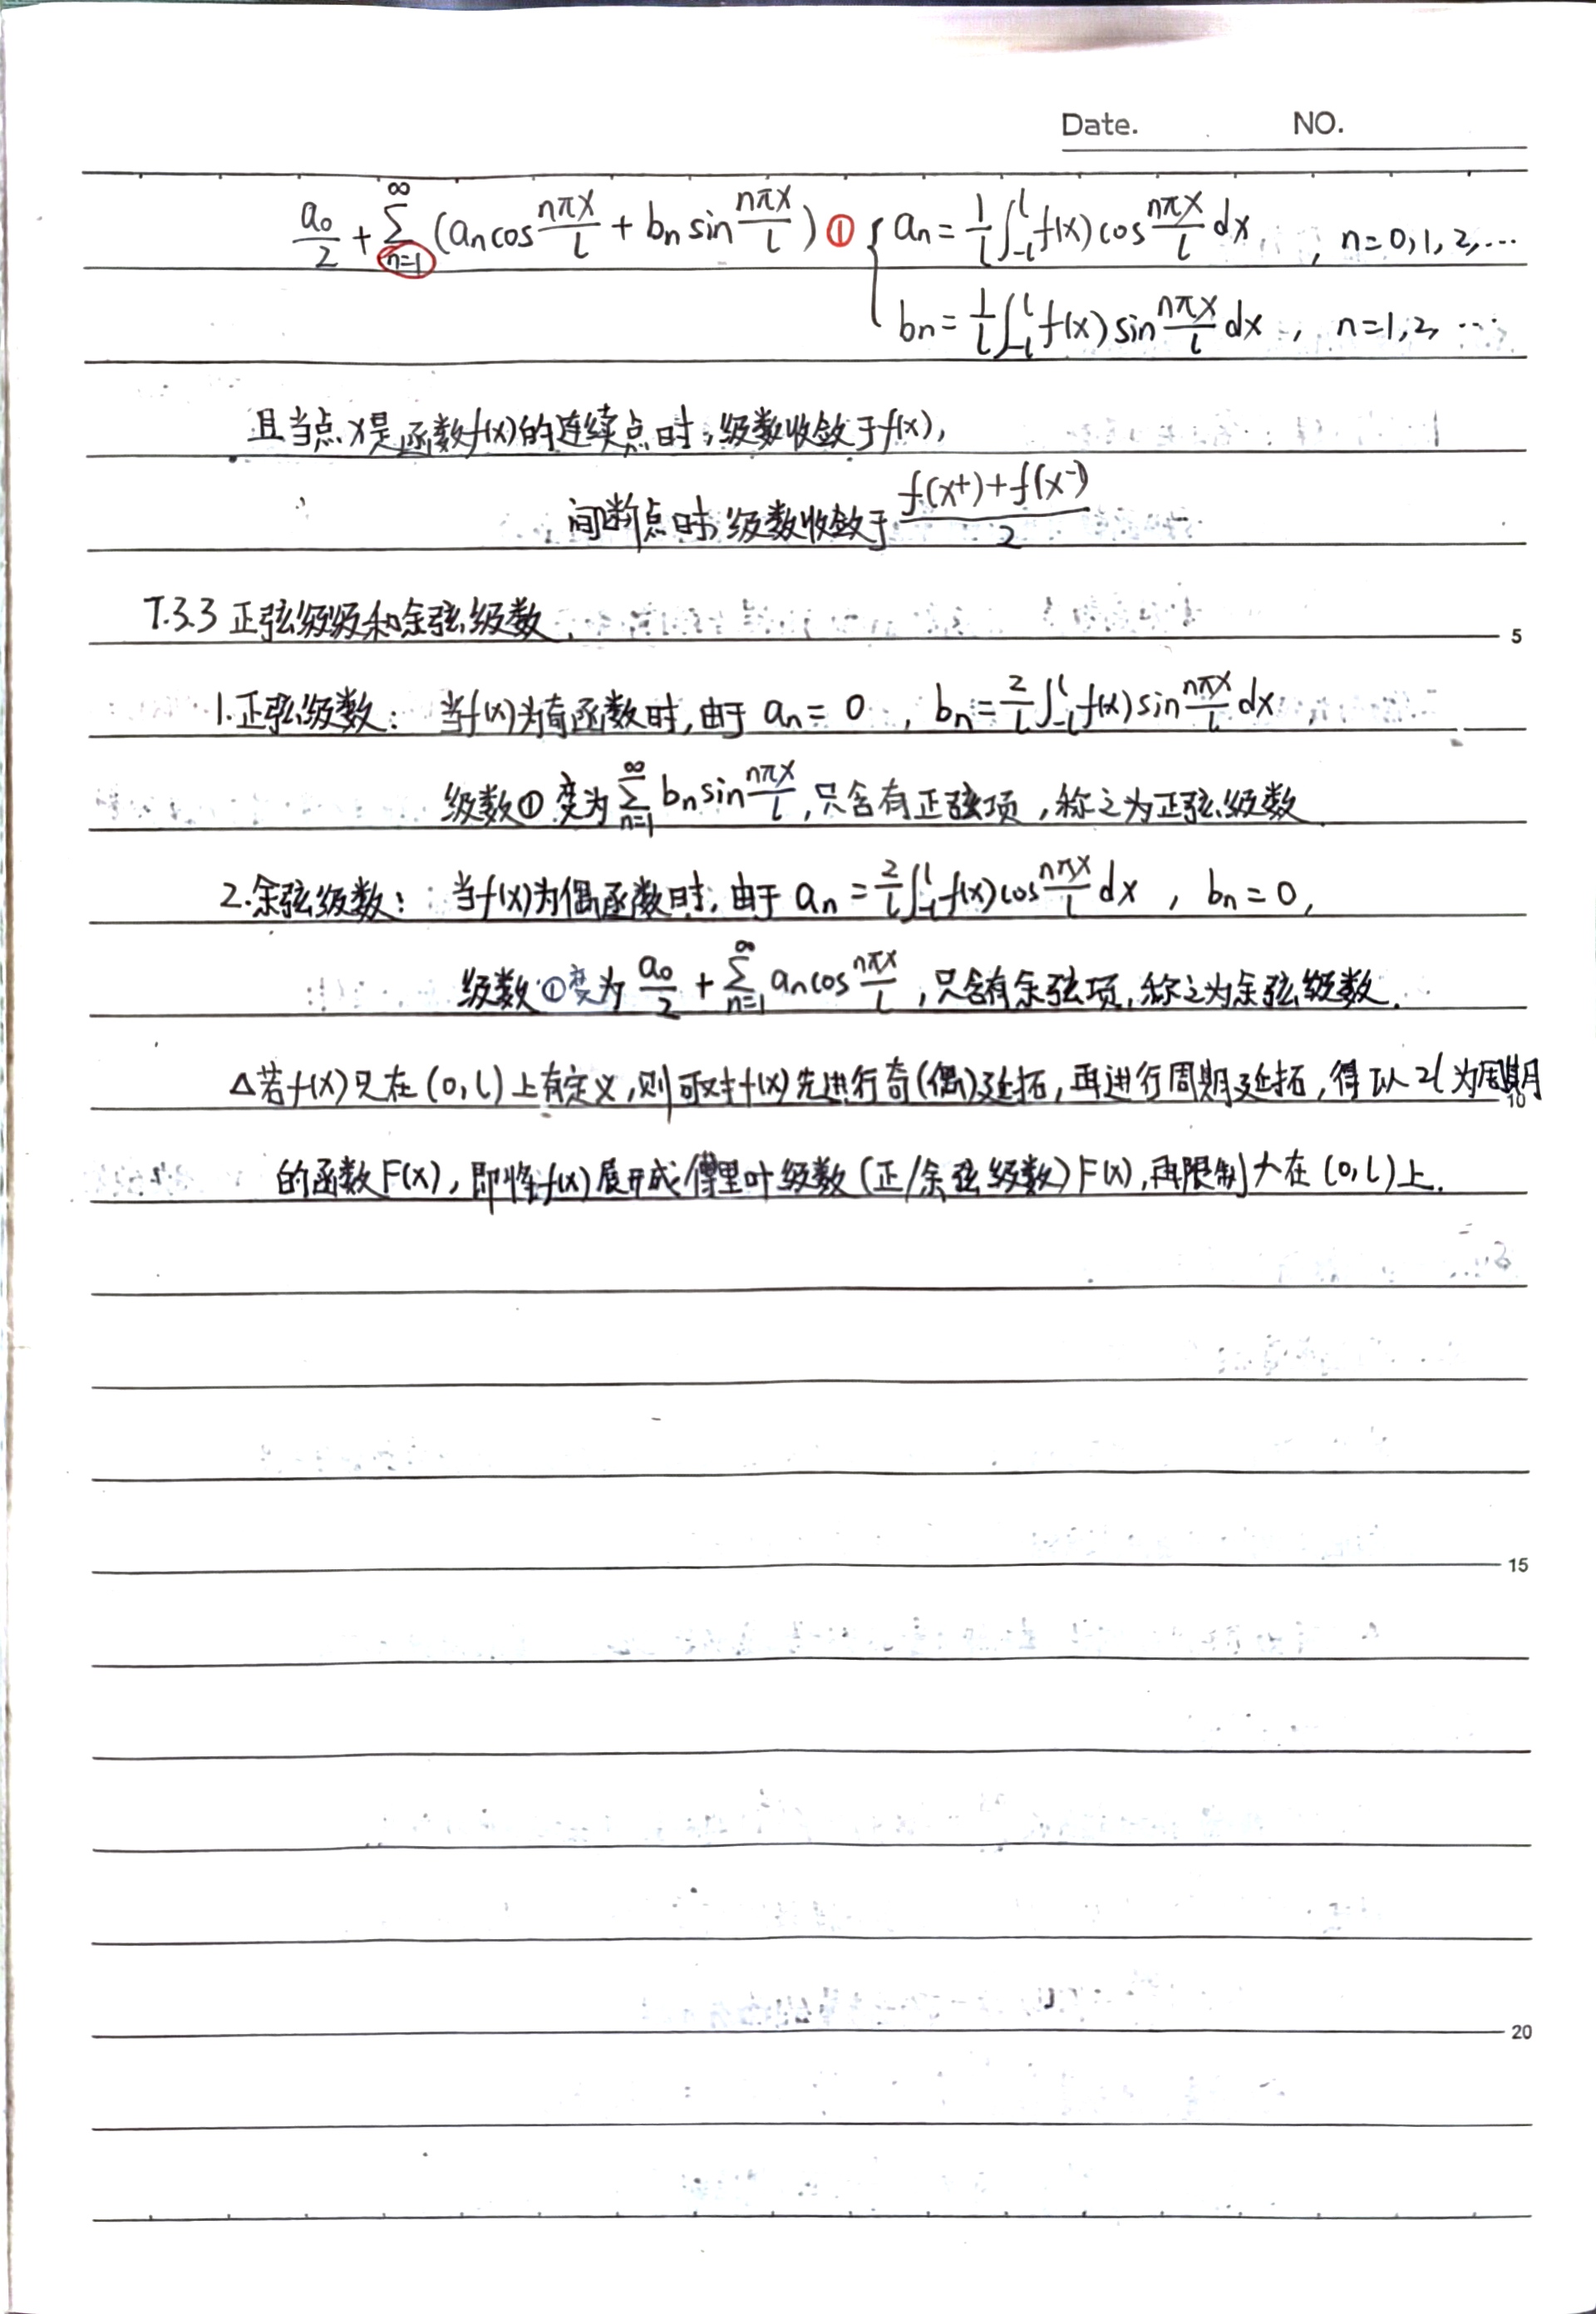 Date. NO.
a₀/2 + ∑_{n=1}^{∞} (aₙcos nπx/l + bₙ sin nπx/l) ① { aₙ = 1/l ∫_{-l}^{l} f(x) cos nπx/l dx , n=0,1,2,…
bₙ = 1/l ∫_{-l}^{l} f(x) sin nπx/l dx , n=1,2, …
且当点x是函数f(x)的连续点时,级数收敛于f(x),
间断点时,级数收敛于 f(x⁺)+f(x⁻)/2
7.3.3 正弦级级和余弦级数. 5
1.正弦级数: 当f(x)为奇函数时,由于 aₙ = 0 , bₙ = 2/l ∫_{-l}^{l} f(x) sin nπx/l dx ,
级数① 变为 ∑_{n=1}^{∞} bₙ sin nπx/l ,只含有正弦项,称之为正弦级数.
2.余弦级数: 当f(x)为偶函数时,由于 aₙ = 2/l ∫_{-l}^{l} f(x) cos nπx/l dx , bₙ = 0,
级数①变为 a₀/2 + ∑_{n=1}^{∞} aₙ cos nπx/l ,只含有余弦项,称之为余弦级数.
△若f(x)只在(0,l)上有定义,则可对f(x)先进行奇(偶)延拓,再进行周期延拓,得以2l为周期 10
的函数F(x),即将f(x)展开成傅里叶级数(正/余弦级数)F(x),再限制在(0,l)上.
15
20